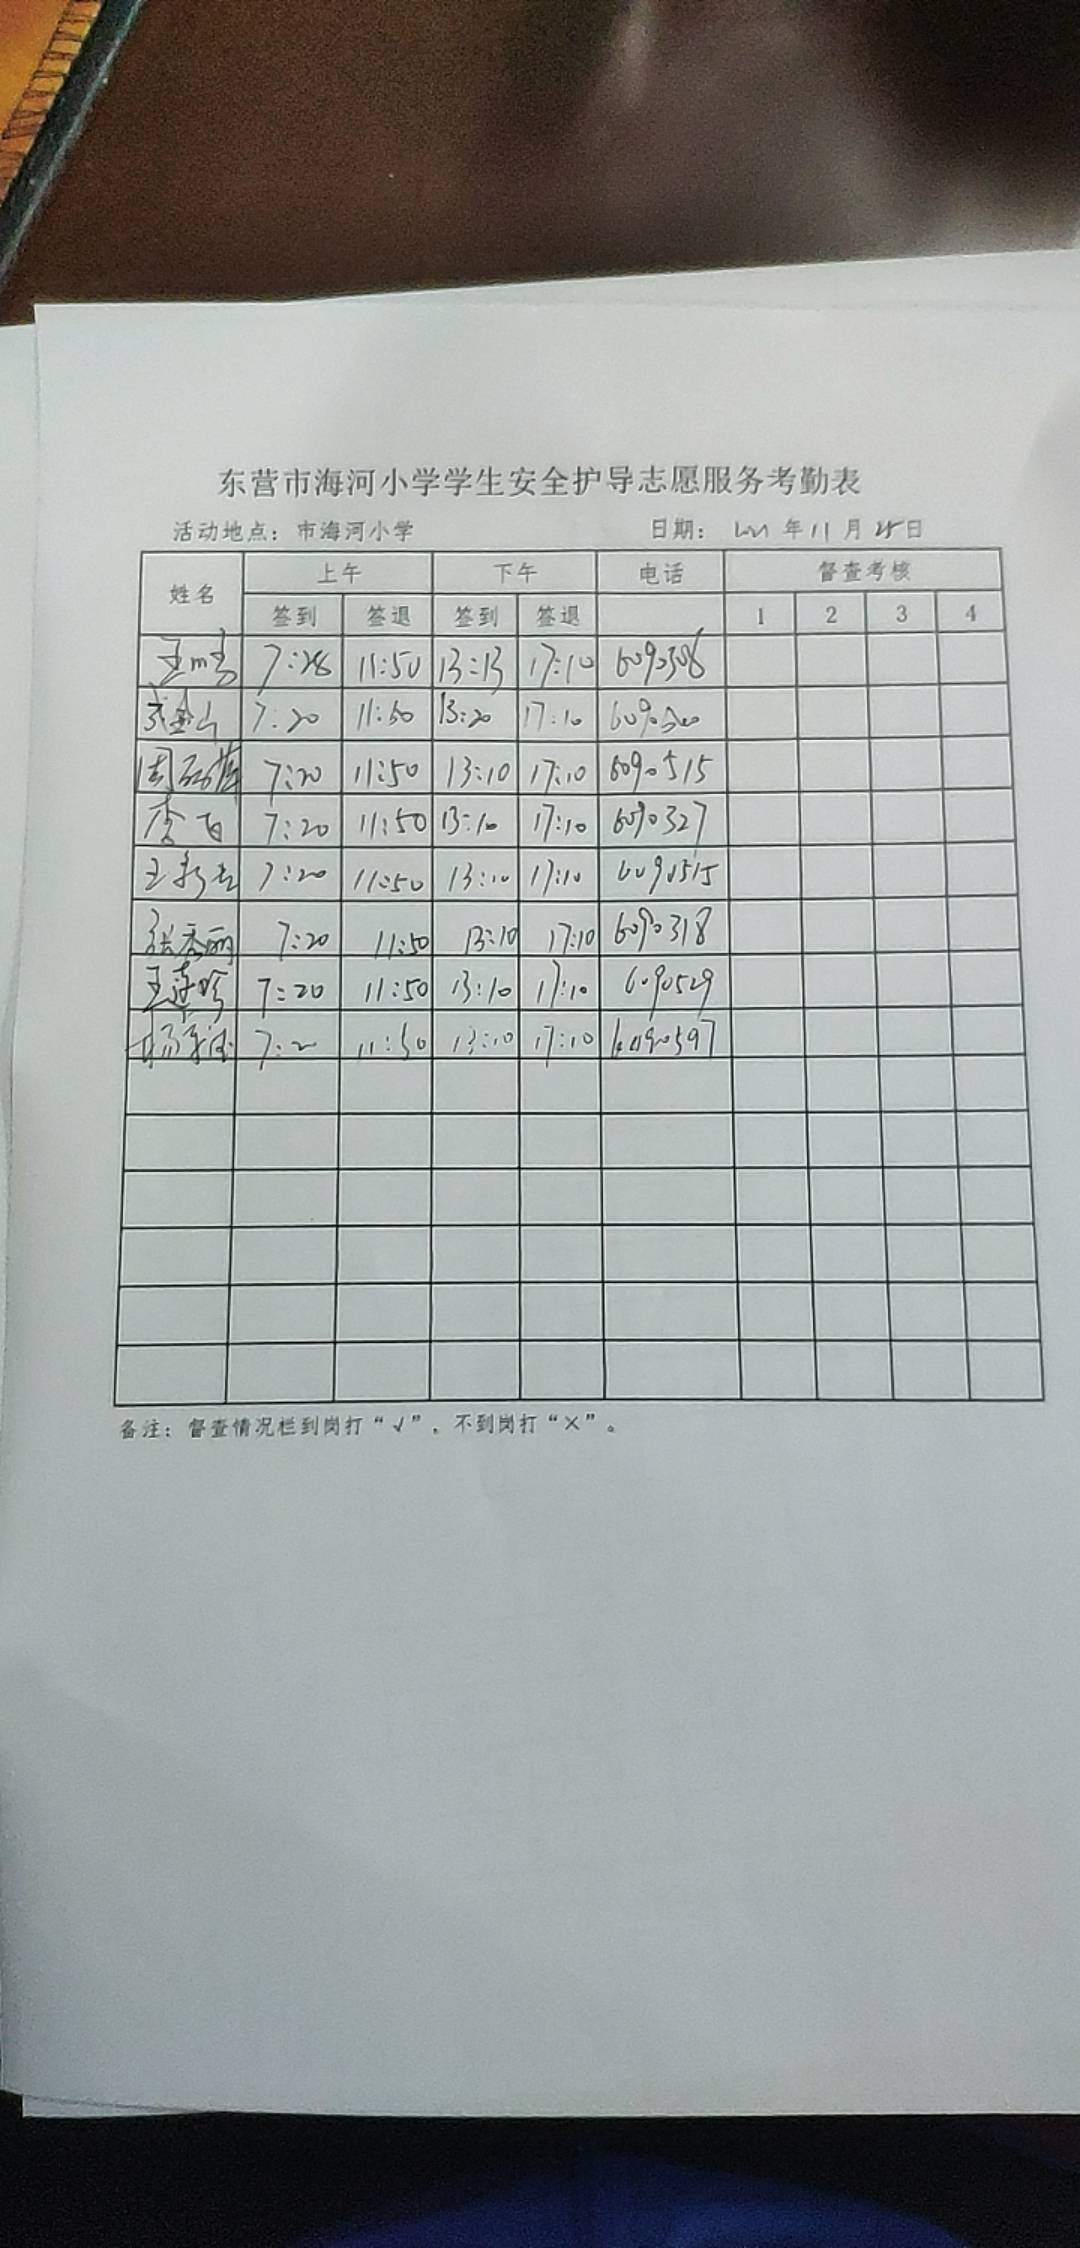 东营市海河小学学生安全护导志愿服务考勤表
活动地点：市海河小学 日期： 年11月25日
姓名 上午 下午 电话 督查考核
签到 签退 签到 签退 1 2 3 4
7:28 11:50 13:13 17:10 6090306
武金山 7:20 11:50 13:20 17:10
7:20 11:50 13:10 17:10 6090515
李 7:20 11:50 13:10 17:10 6090327
王 7:20 11:50 13:10 17:10 6090515
张秀丽 7:20 11:50 13:10 17:10 6090318
王莲珍 7:20 11:50 13:10 17:10 6090529
杨 7:20 11:50 13:10 17:10 6090597
备注：督查情况栏到岗打“√”，不到岗打“×”。